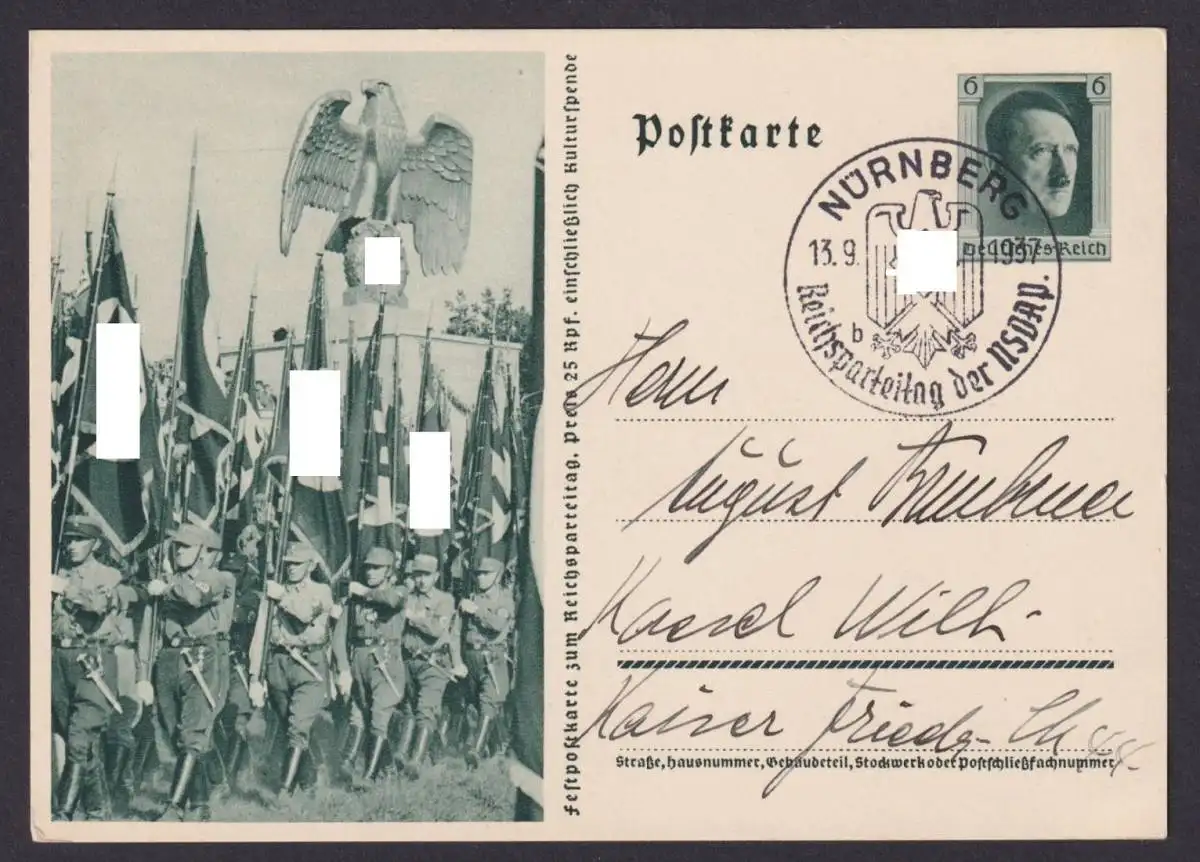 Festpostkarte zum Reichsparteitag. Preis 25 Rpf. einschließlich Kulturspende
Postkarte
6 6
Deutsches Reich
NÜRNBERG
13.9. 1937
b
Reichsparteitag der NSDAP.
Herrn
August
Kassel Wilh.
Kaiser Friedr.
Straße, Hausnummer, Gebäudeteil, Stockwerk oder Postschließfachnummer